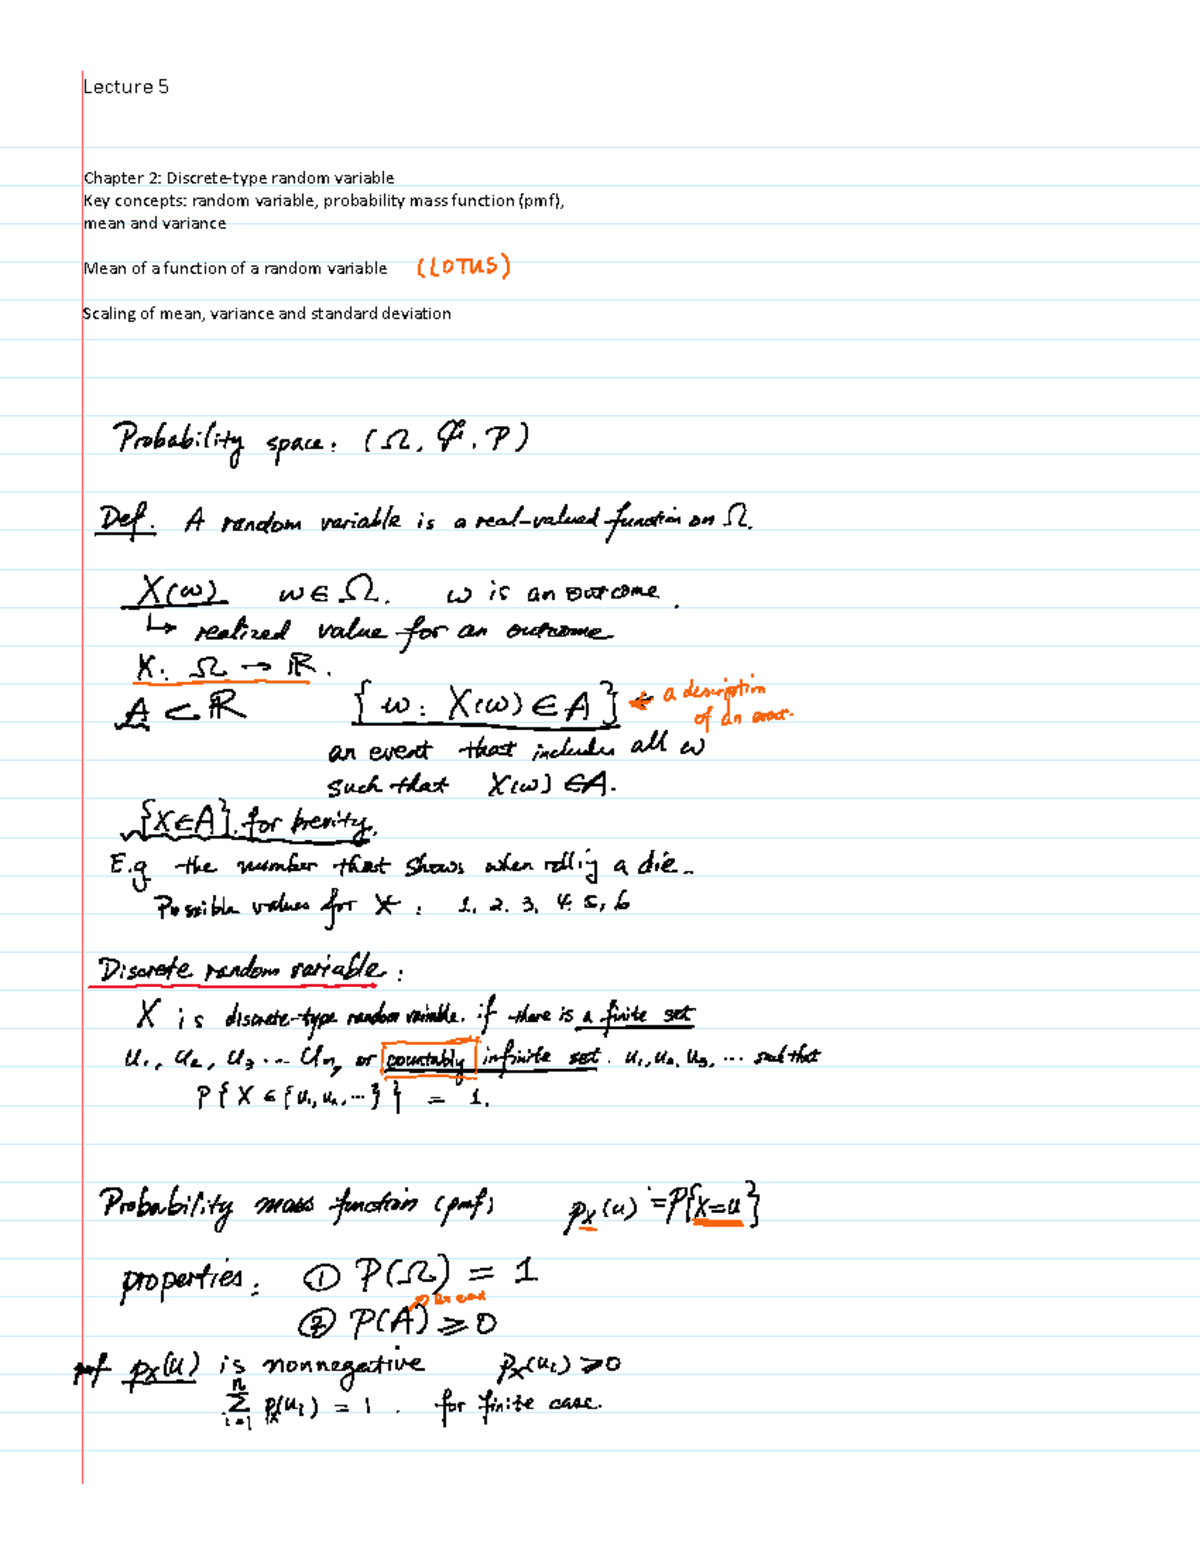 Lecture 5
Chapter 2: Discrete-type random variable
Key concepts: random variable, probability mass function (pmf),
mean and variance
Mean of a function of a random variable (LOTUS)
Scaling of mean, variance and standard deviation
Probability space: (Ω, F, P)
Def. A random variable is a real-valued function on Ω.
X(ω) ω ∈ Ω. ω is an outcome.
↳ realized value for an outcome
X: Ω → ℝ.
A ⊂ ℝ {ω: X(ω) ∈ A} ← a description
of an event.
an event that includes all ω
such that X(ω) ∈ A.
{X∈A}. for brevity.
E.g the number that shows when rollig a die.
Possible values for X: 1, 2, 3, 4, 5, 6
Discrete random variable:
X is discrete-type random variable. if there is a finite set
u₁, u₂, u₃ ... uₙ, or countably infinite set. u₁, u₂, u₃, ... such that
P{X ∈ {u₁, u₂, ...}} = 1.
Probability mass function (pmf) p_X(u) = P{X=u}
properties: ① P(Ω) = 1
② P(A) ≥ 0
pmf p_X(u) is nonnegative p_X(uᵢ) ≥ 0
∑ᵢ₌₁ⁿ p_X(uᵢ) = 1. for finite case.